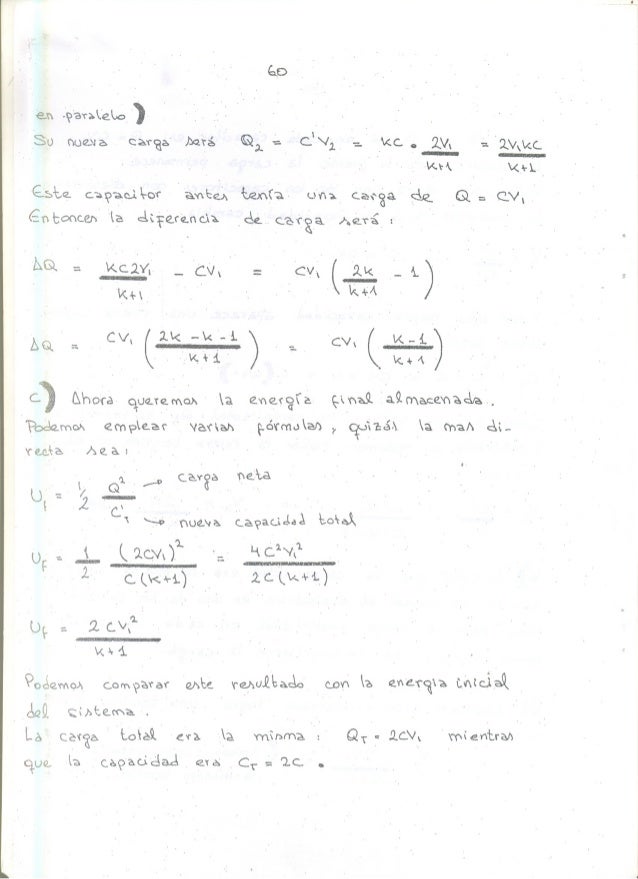 60
en paralelo)
Su nueva carga será Q₂ = C'V₂ = KC • 2V₁/K+1 = 2V₁KC/K+1
Este capacitor antes tenía una carga de Q = CV₁
Entonces la diferencia de carga será :
ΔQ = KC2V₁/K+1 - CV₁ = CV₁ (2K/K+1 - 1)
ΔQ = CV₁ (2K-K-1/K+1) = CV₁ (K-1/K+1)
c) Ahora queremos la energía final almacenada.
Podemos emplear varias fórmulas, quizás la mas di-
recta sea:
Uf = 1/2 Q²/C'T → carga neta
→ nueva capacidad total
UF = 1/2 (2CV₁)²/C(K+1) = 4C²V₁²/2C(K+1)
Uf = 2CV₁²/K+1
Podemos comparar este resultado con la energia inicial
del sistema.
La carga total era la misma : QT = 2CV₁ mientras
que la capacidad era CT = 2C .